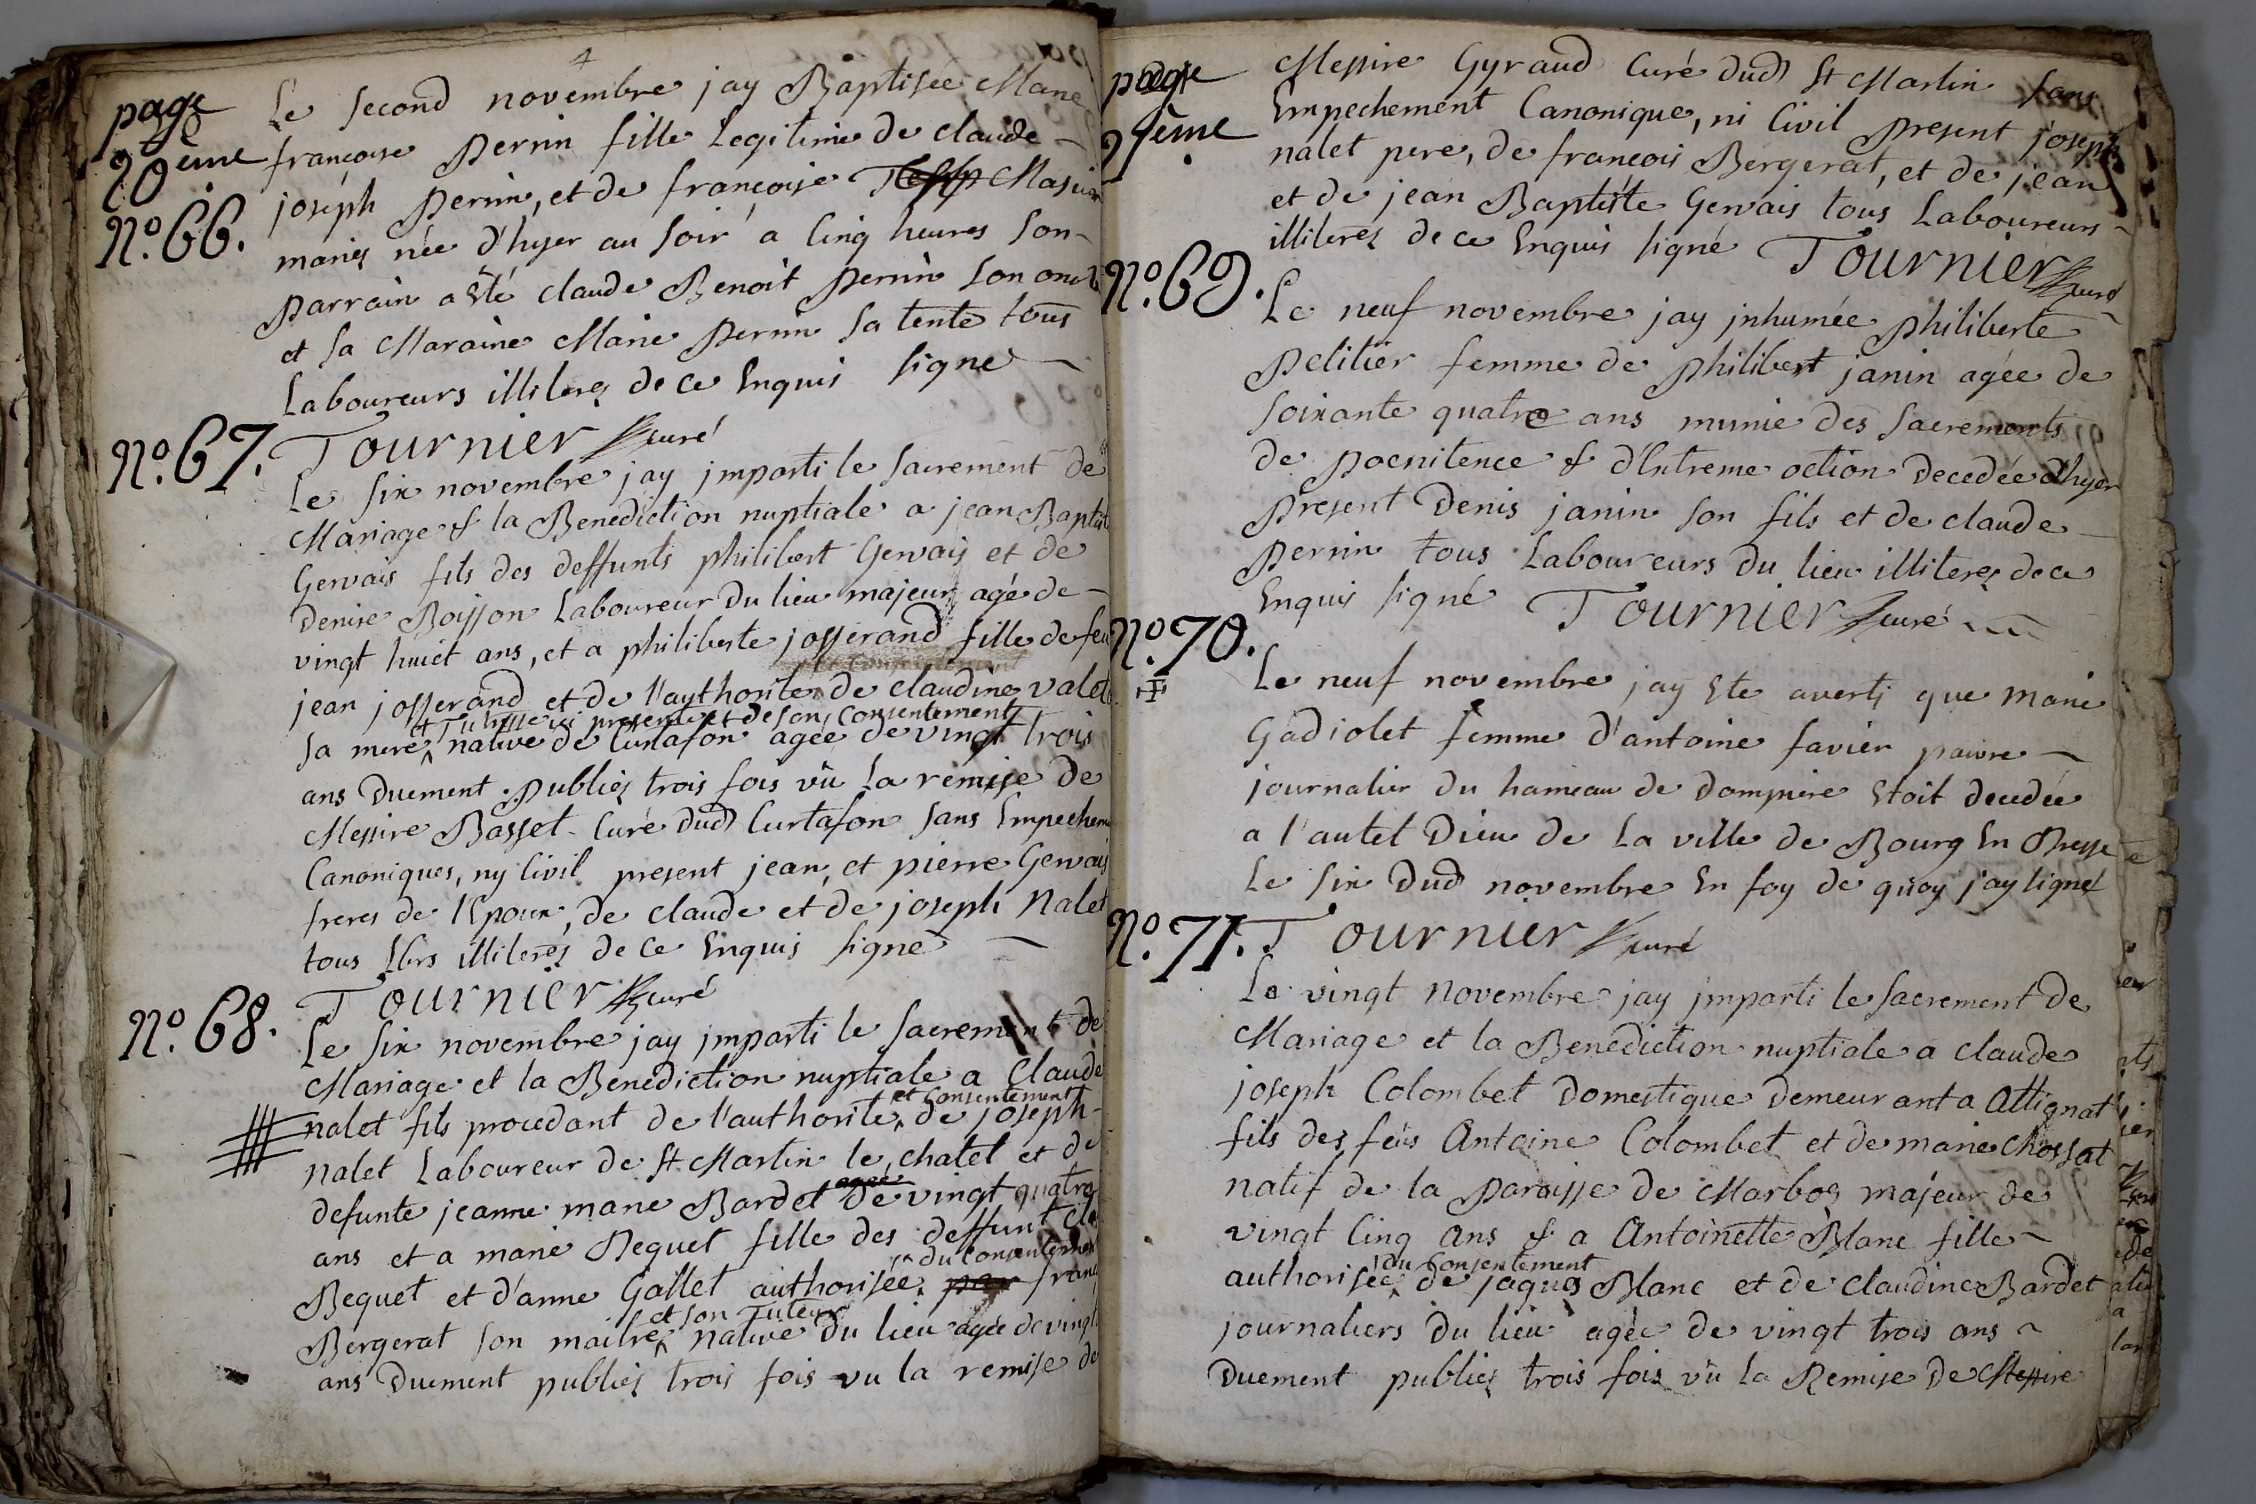 4
page
20ème
Nº.66.
Le second novembre jay Baptisée Marie
francoise Perrin fille Legitime de claude
joséph Perrin, et de françoise
mariés née d'hyer au soir a cinq heures son
parrain a êté claude Benoit Perrin son oncle
et sa Maraine Marie Perrin sa tente tous
Laboureurs illiterés de ce Enquis signé
Tournier curé
Nº.67.
Le six novembre jay jmparti le sacrement de
Mariage & la Benediction nuptiale a jean Baptist
Gervais fils des deffunts philibert Gervais et de
denise Boisson Laboureur du lieu majeur agé de
vingt huict ans, et a philiberte josserand fille de feu
jean josserand et de l'aythorite de claudine valet
et Tutrisse ici presente et de son consentement
sa mere native de Curtafon agée de vingt trois
ans Duement publiés trois fois vû La remise de
Messire Basset Curé dud Curtafon sans Empechem
Canoniques, ny Civil present jean, et pierre Gervais
freres de l'Epoux, de claude et de joseph Nalet
tous Lbrs illiterés de ce Enquis signé
Tournier curé
Nº.68.
Le six novembre jay jmparti le sacrement de
Mariage et la Benediction nuptiale a Claude
et Consentement
nalet fils procedant de l'authorite de joseph
nalet Laboureur de St. Martin le chatel et de
defunte jeanne marie Bardet agée de vingt quatre
ans et a marie Bequet fille des deffunt Cla
du consentement
Bequet et d'anne Gallet authorisée par franç
et son Tuteur
Bergerat son maitre native du lieu agée de vingt
ans Duement publiés trois fois vu la remise de
page
21ème
Messire Gyraud Curé dud St Martin sans
Empechement Canonique, ni Civil present joseph
nalet pere, de francois Bergerat, et de jean
et de jean Baptiste Gervais tous Laboureurs
illiterés de ce Enquis signé Tournier curé
Nº.69.
Le neuf novembre jay jnhumée philiberte
Pelitier femme de philibert janin agée de
soixante quatre ans munie des sacrements
de poenitence & d'Extreme oction decedée d'hyer
present Denis janin son fils et de claude
Perrin tous Laboureurs du lieu illiterés de ce
Enquis signé Tournier curé
Nº.70.
Le neuf novembre jay Ete averti que marie
Gadiolet femme d'antoine favier pauvre
journalier du hameau de dompiere Etoit decedée
a l'autel Dieu de La ville de Bourg En Bresse
Le six dud novembre En foy de quoy j'ay signé
Nº.71.
Tournier curé
Le vingt novembre jay jmparti le sacrement de
Mariage et la Benediction nuptiale a claude
joseph Colombet Domestique Demeurant a Attignat
fils des feüs Antoine Colombet et de marie Chossat
natif de la Paroisse de Marbos majeur de
vingt Cinq ans & a Antoinette Blanc fille
du consentement
authorisée de jaques Blanc et de claudine Bardet
journaliers du lieu agée de vingt trois ans
Duement publiés trois fois vû la Remise de Messire